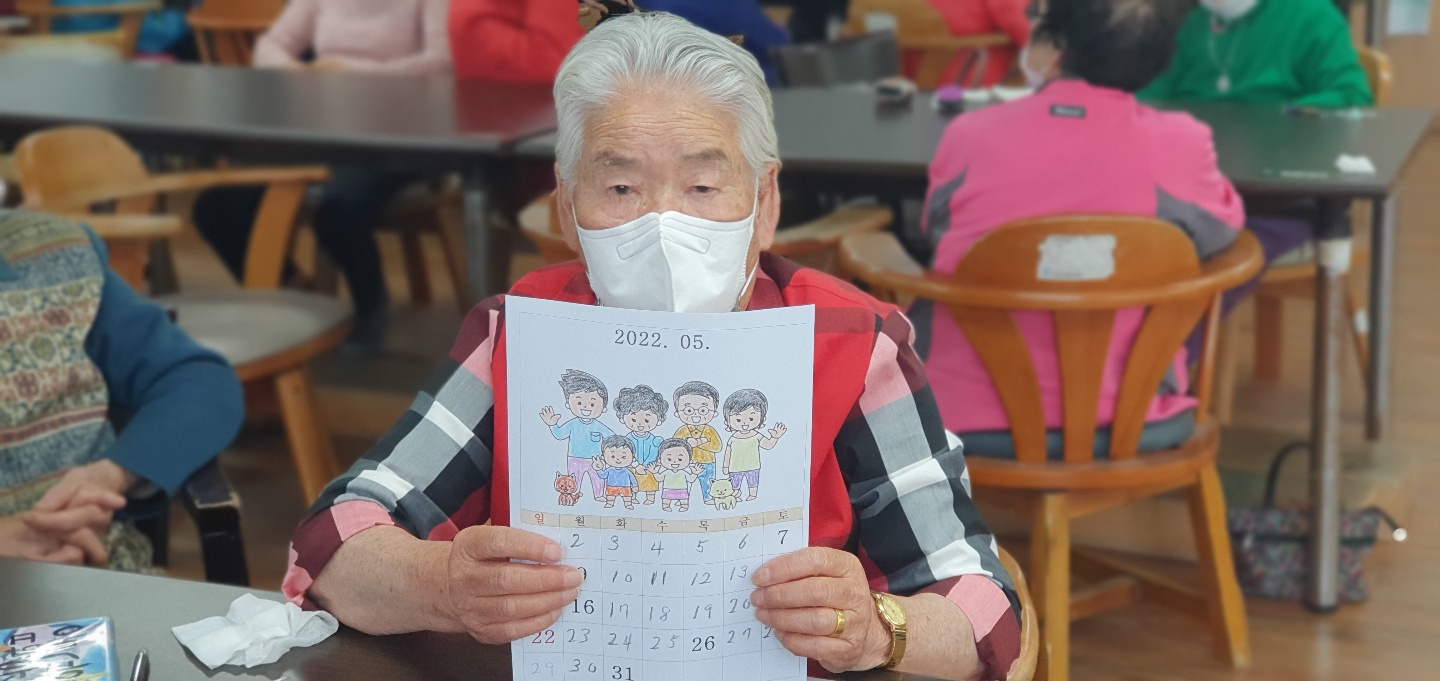 2022. 05.
일 월 화 수 목 금 토
2 3 4 5 6 7
10 11 12 13
16 17 18 19 20
22 23 24 25 26 27
29 30 31